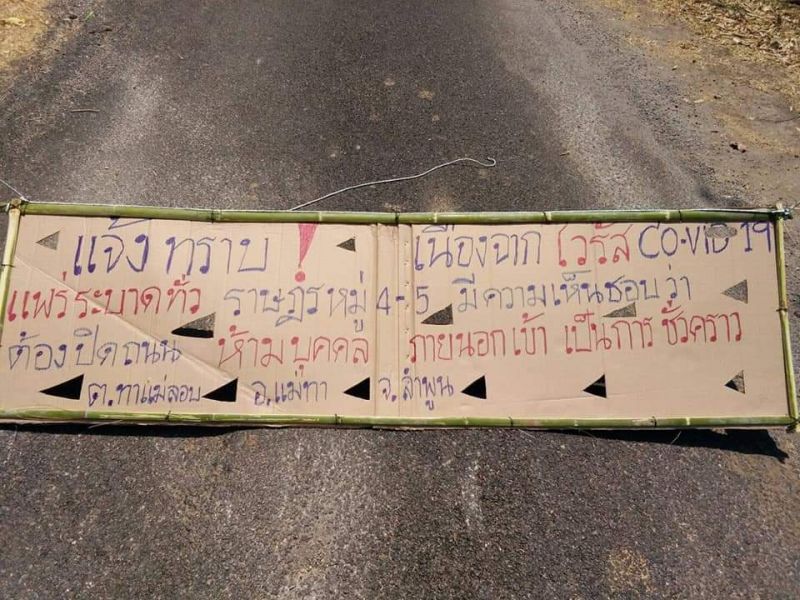 แจ้งทราบ ! เนื่องจาก ไวรัส CO-VID-19
แพร่ระบาดทั่ว ราษฎรหมู่ 4-5 มีความเห็นชอบว่า
ต้องปิดถนน ห้ามบุคคล ภายนอกเข้า เป็นการ ชั่วคราว
ต.ทาแม่ลอบ อ.แม่ทา จ.ลำพูน